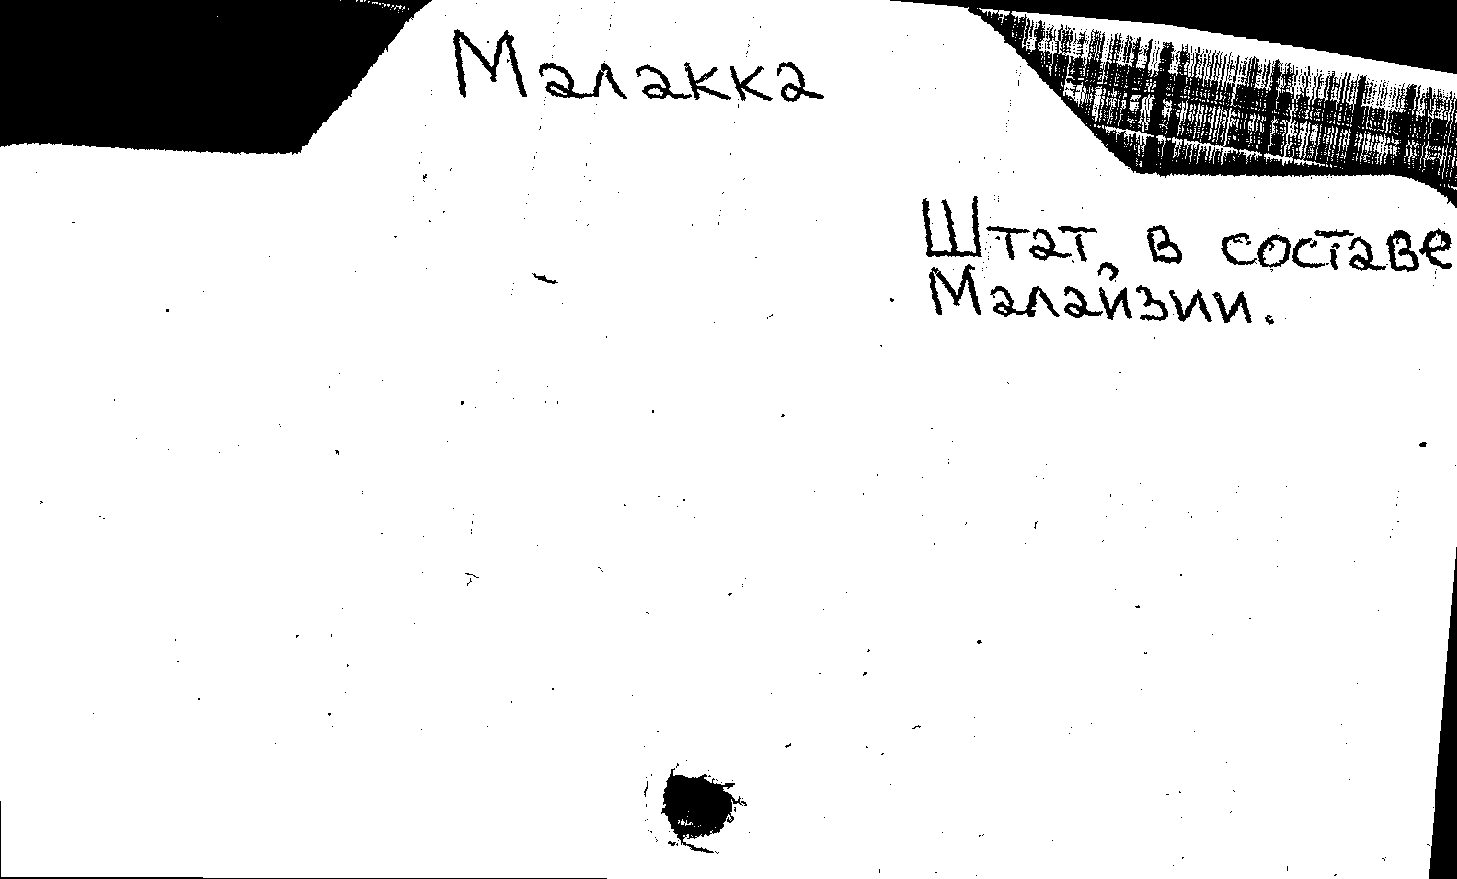 Малакка
Штат в составе
Малайзии.